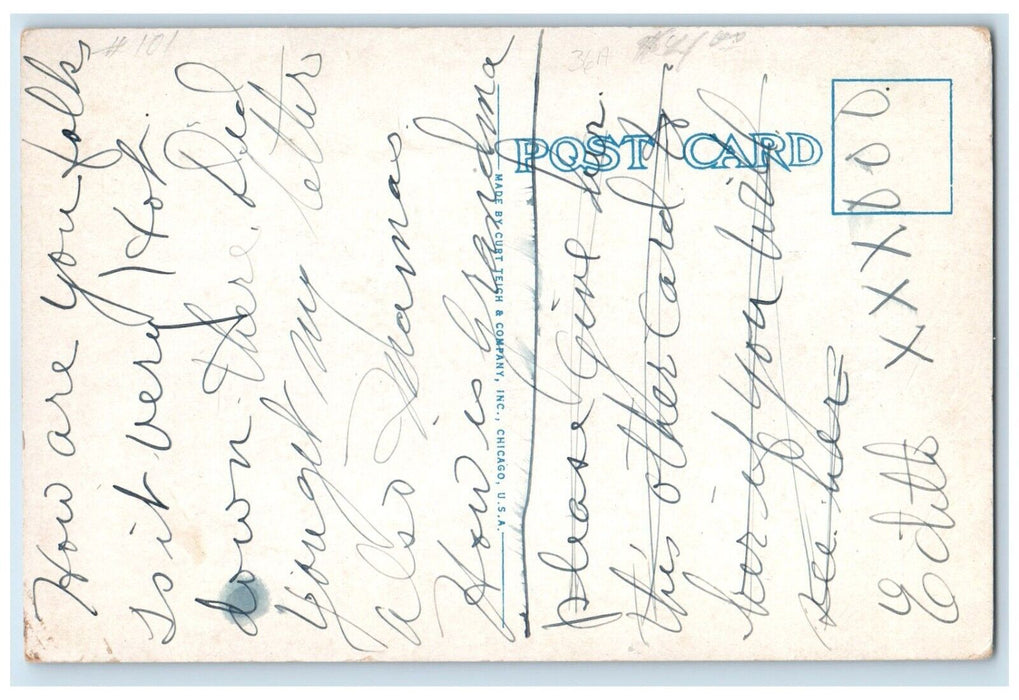 How are you folks
is it very Hot
down there. Did
you get my letter
also Mama.
How is Grandma
please give her.
this other card to
her if you will
see her
Edith XXX
# 101
36A
POST CARD
MADE BY CURT TEICH & COMPANY, INC., CHICAGO, U.S.A.